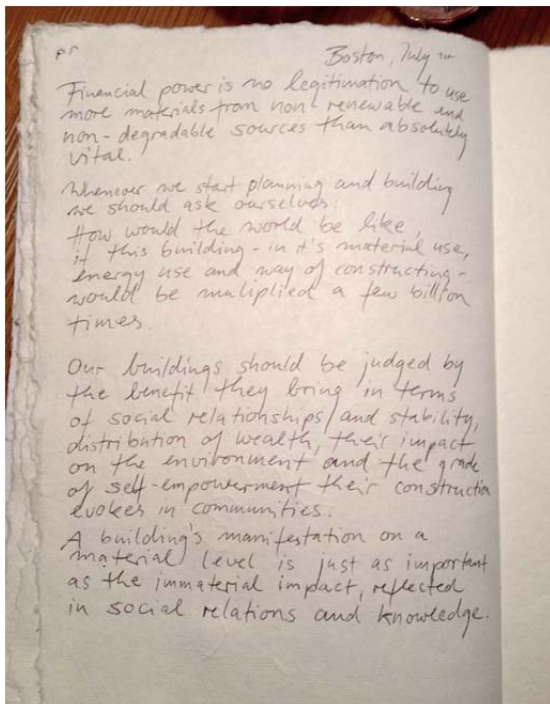 Boston, July
Financial power is no legitimation to use
more materials from non renewable and
non-degradable sources than absolutely
vital.
Whenever we start planning and building
we should ask ourselves:
How would the world be like,
if this building - in it's material use,
energy use and way of constructing -
would be muliplied a few billion
times.
Our buildings should be judged by
the benefit they bring in terms
of social relationships and stability,
distribution of wealth, their impact
on the environment and the grade
of self-empowerment their construction
evokes in communities.
A building's manifestation on a
material level is just as important
as the immaterial impact, reflected
in social relations and knowledge.